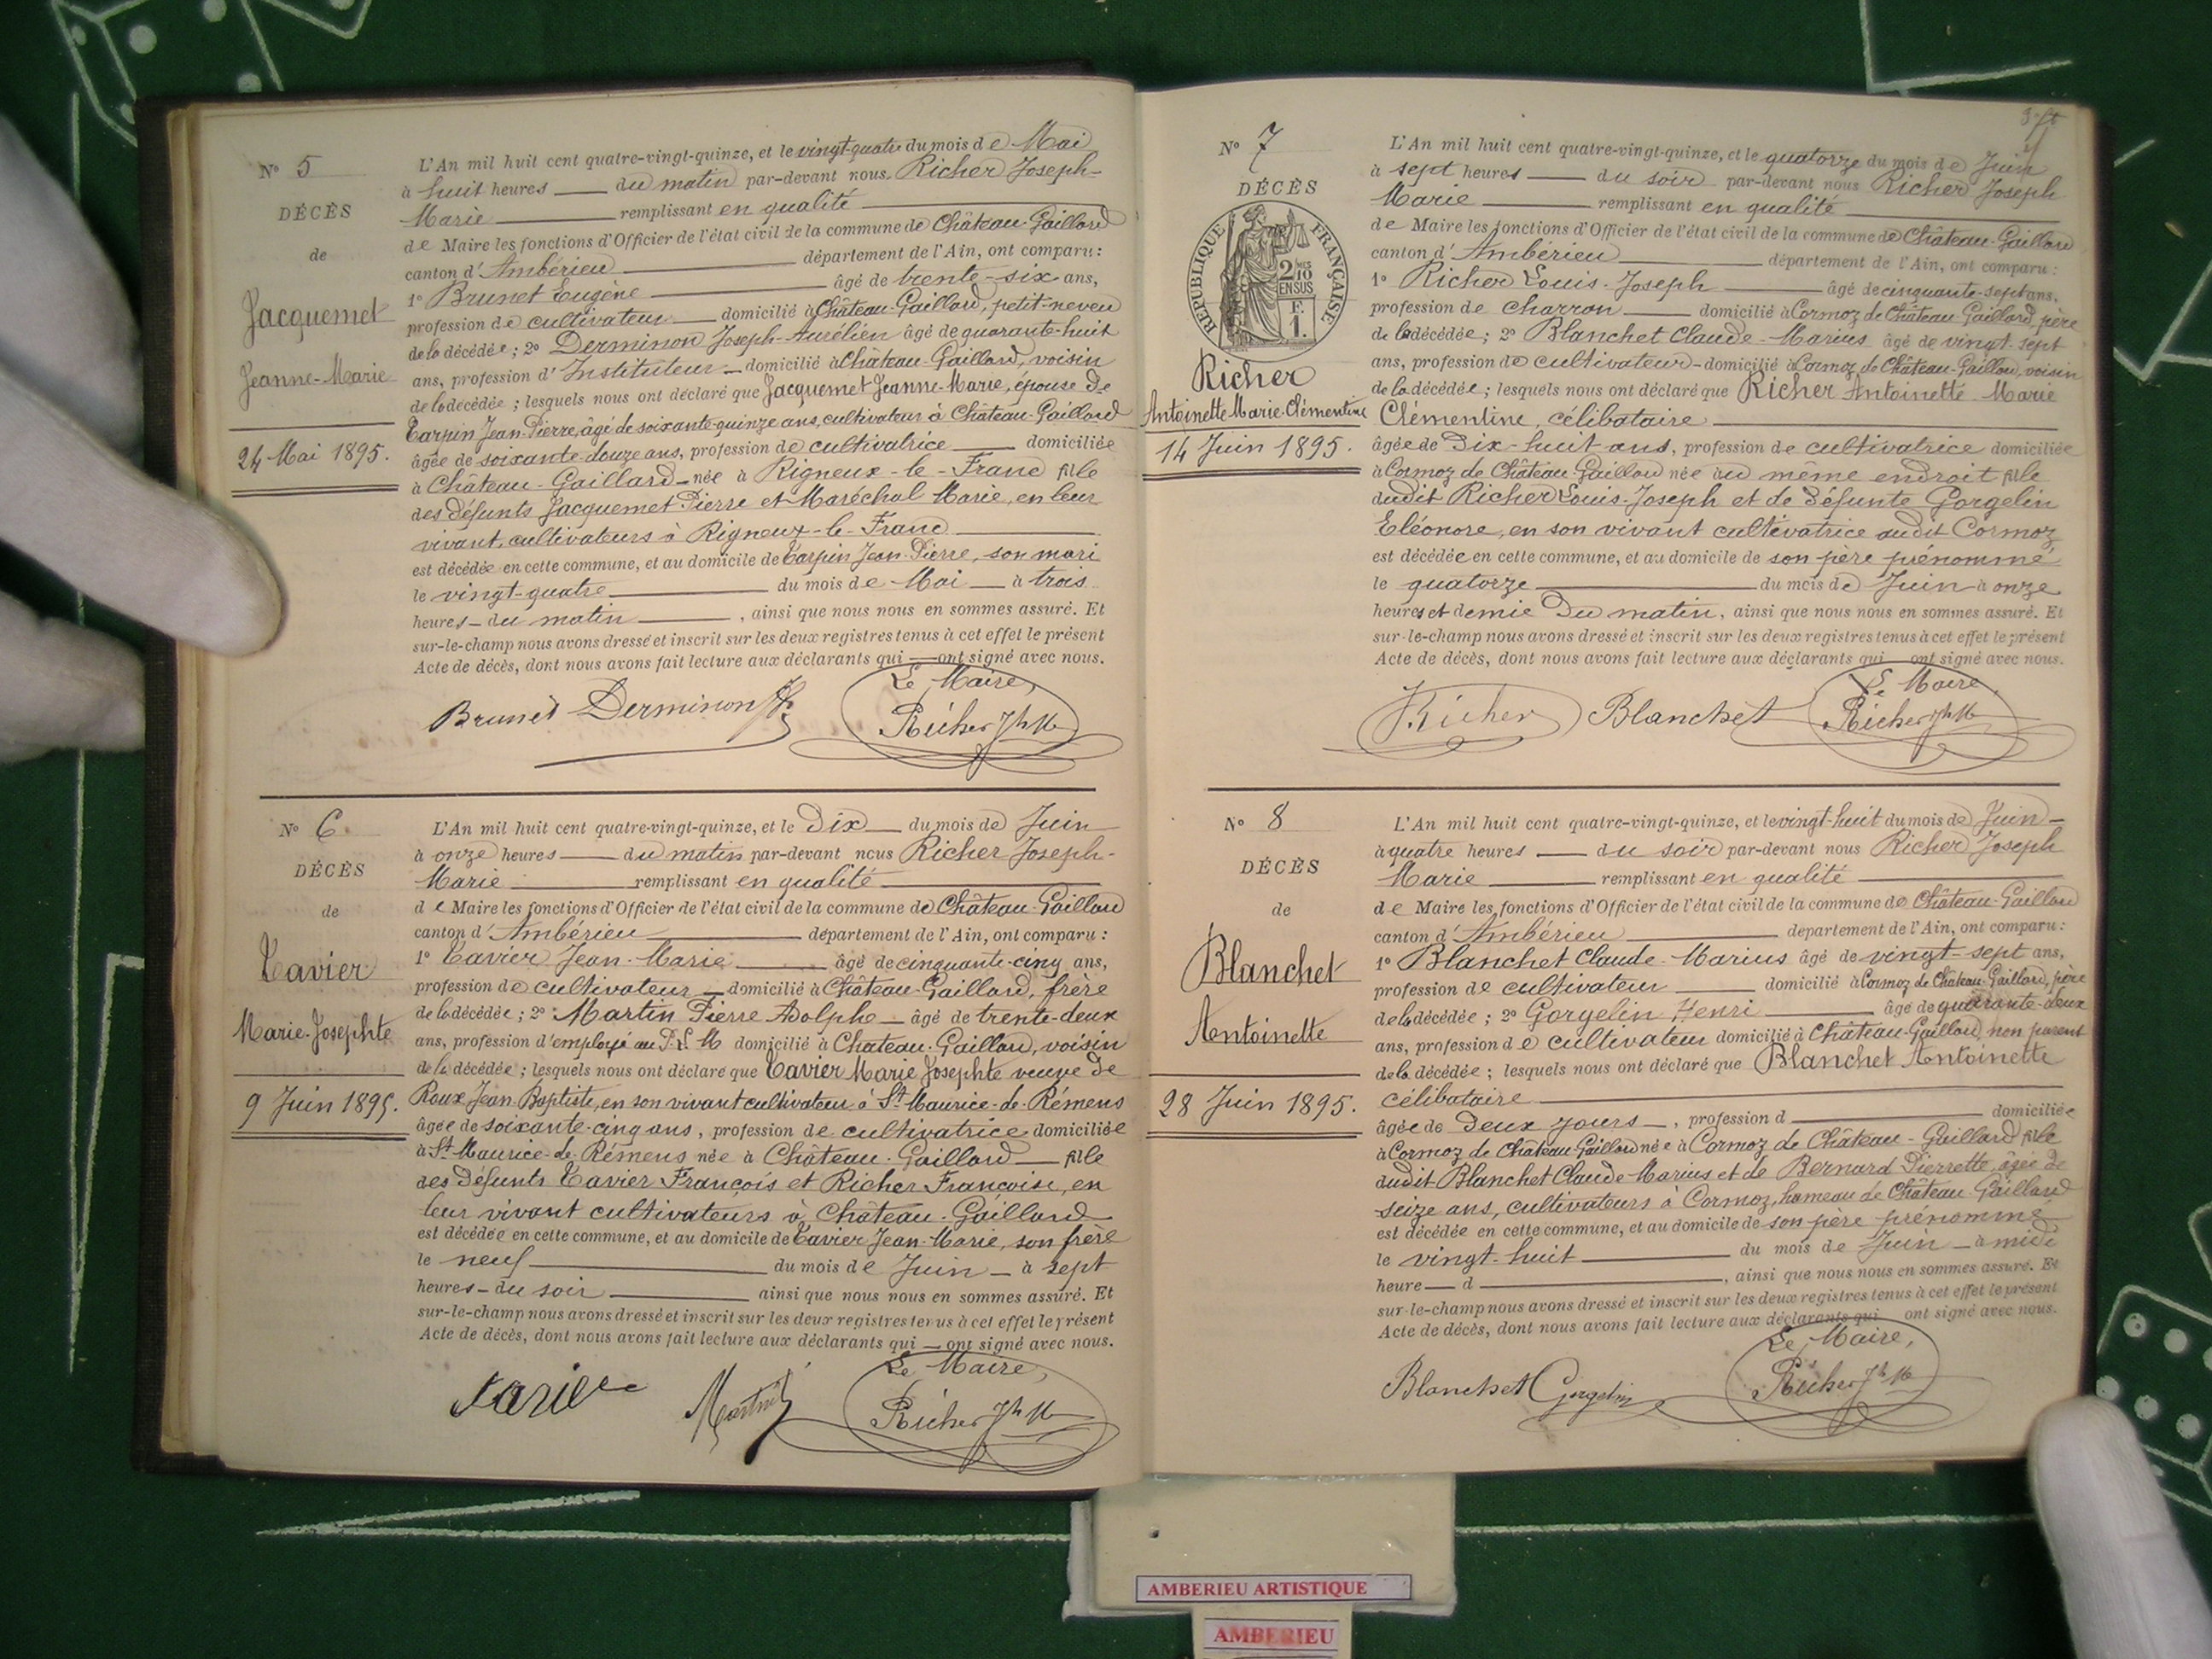 N° 5
DÉCÈS
de
Jacquemet
Jeanne-Marie
24 Mai 1895.
L'An mil huit cent quatre-vingt-quinze, et le vingt-quatre du mois de Mai
à huit heures du matin par-devant nous Richer Joseph-
Marie remplissant en qualité
de Maire les fonctions d'Officier de l'état civil de la commune de Château-Gaillard
canton d'Ambérieu département de l'Ain, ont comparu :
1° Brunet Eugène âgé de trente-six ans,
profession de cultivateur domicilié à Château-Gaillard, petit-neveu
de la décédée ; 2° Derminon Joseph-Aurélien âgé de quarante-huit
ans, profession d'Instituteur domicilié à Château-Gaillard, voisin
de la décédée ; lesquels nous ont déclaré que Jacquemet Jeanne-Marie, épouse de
Tarpin Jean-Pierre, âgé de soixante-quinze ans, cultivateur à Château-Gaillard
âgée de soixante-douze ans, profession de cultivatrice domiciliée
à Château-Gaillard née à Rigneux-le-Franc fille
des défunts Jacquemet Pierre et Maréchal Marie, en leur
vivant, cultivateurs à Rigneux-le-Franc
est décédée en cette commune, et au domicile de Tarpin Jean-Pierre, son mari
le vingt-quatre du mois de Mai à trois
heures du matin, ainsi que nous nous en sommes assuré. Et
sur-le-champ nous avons dressé et inscrit sur les deux registres tenus à cet effet le présent
Acte de décès, dont nous avons fait lecture aux déclarants qui ont signé avec nous.
Le Maire,
Brunet Derminon Richer Jh M
N° 6
DÉCÈS
de
Tavier
Marie-Josephte
9 Juin 1895.
L'An mil huit cent quatre-vingt-quinze, et le dix du mois de Juin
à onze heures du matin par-devant nous Richer Joseph-
Marie remplissant en qualité
de Maire les fonctions d'Officier de l'état civil de la commune de Château-Gaillard
canton d'Ambérieu département de l'Ain, ont comparu :
1° Tavier Jean-Marie âgé de cinquante-cinq ans,
profession de cultivateur domicilié à Château-Gaillard, frère
de la décédée ; 2° Martin Pierre Adolphe âgé de trente-deux
ans, profession d'employé au P.L.M domicilié à Chateau-Gaillard, voisin
de la décédée ; lesquels nous ont déclaré que Tavier Marie Josephte veuve de
Roux Jean-Baptiste, en son vivant cultivateur à St Maurice-de-Rémens
âgée de soixante-cinq ans, profession de cultivatrice domiciliée
à St Maurice-de-Rémens née à Château-Gaillard fille
des défunts Tavier François et Richer Françoise, en
leur vivant cultivateurs à Château-Gaillard
est décédée en cette commune, et au domicile de Tavier Jean-Marie, son frère
le neuf du mois de Juin à sept
heures du soir ainsi que nous nous en sommes assuré. Et
sur-le-champ nous avons dressé et inscrit sur les deux registres tenus à cet effet le présent
Acte de décès, dont nous avons fait lecture aux déclarants qui ont signé avec nous.
Le Maire,
Tavier Martin Richer Jh M
N° 7
DÉCÈS
RÉPUBLIQUE FRANÇAISE
2 MES 10
EN SUS
F.
1.
Richer
Antoinette Marie Clémentine
14 Juin 1895.
L'An mil huit cent quatre-vingt-quinze, et le quatorze du mois de Juin
à sept heures du soir par-devant nous Richer Joseph
Marie remplissant en qualité
de Maire les fonctions d'Officier de l'état civil de la commune de Château-Gaillard
canton d'Ambérieu département de l'Ain, ont comparu :
1° Richer Louis-Joseph âgé de cinquante-sept ans,
profession de charron domicilié à Cormoz de Château-Gaillard, père
de la décédée ; 2° Blanchet Claude-Marius âgé de vingt-sept
ans, profession de cultivateur domicilié à Cormoz de Château-Gaillard, voisin
de la décédée ; lesquels nous ont déclaré que Richer Antoinette Marie
Clémentine, célibataire
âgée de Dix-huit ans, profession de cultivatrice domiciliée
à Cormoz de Château-Gaillard née au même endroit fille
dudit Richer Louis-Joseph et de défunte Gorgelin
Eléonore, en son vivant cultivatrice audit Cormoz
est décédée en cette commune, et au domicile de son père prénommé
le quatorze du mois de Juin à onze
heures et demie du matin, ainsi que nous nous en sommes assuré. Et
sur-le-champ nous avons dressé et inscrit sur les deux registres tenus à cet effet le présent
Acte de décès, dont nous avons fait lecture aux déclarants qui ont signé avec nous.
Le Maire,
Richer Blanchet Richer Jh M
N° 8
DÉCÈS
de
Blanchet
Antoinette
28 Juin 1895.
L'An mil huit cent quatre-vingt-quinze, et le vingt-huit du mois de Juin
à quatre heures du soir par-devant nous Richer Joseph
Marie remplissant en qualité
de Maire les fonctions d'Officier de l'état civil de la commune de Château-Gaillard
canton d'Ambérieu département de l'Ain, ont comparu :
1° Blanchet Claude-Marius âgé de vingt-sept ans,
profession de cultivateur domicilié à Cormoz de Château-Gaillard, père
de la décédée ; 2° Gorgelin Henri âgé de quarante-deux
ans, profession de cultivateur domicilié à Château-Gaillard, non parent
de la décédée ; lesquels nous ont déclaré que Blanchet Antoinette
célibataire
âgée de deux jours, profession d domiciliée
à Cormoz de Château-Gaillard née à Cormoz de Château-Gaillard fille
dudit Blanchet Claude-Marius et de Bernard Pierrette, âgée de
seize ans, cultivateurs à Cormoz, hameau de Château-Gaillard
est décédée en cette commune, et au domicile de son père prénommé
le vingt-huit du mois de Juin à midi
heure d , ainsi que nous nous en sommes assuré. Et
sur-le-champ nous avons dressé et inscrit sur les deux registres tenus à cet effet le présent
Acte de décès, dont nous avons fait lecture aux déclarants qui ont signé avec nous.
Le Maire,
Blanchet Gorgelin Richer Jh M
AMBERIEU ARTISTIQUE
AMBERIEU